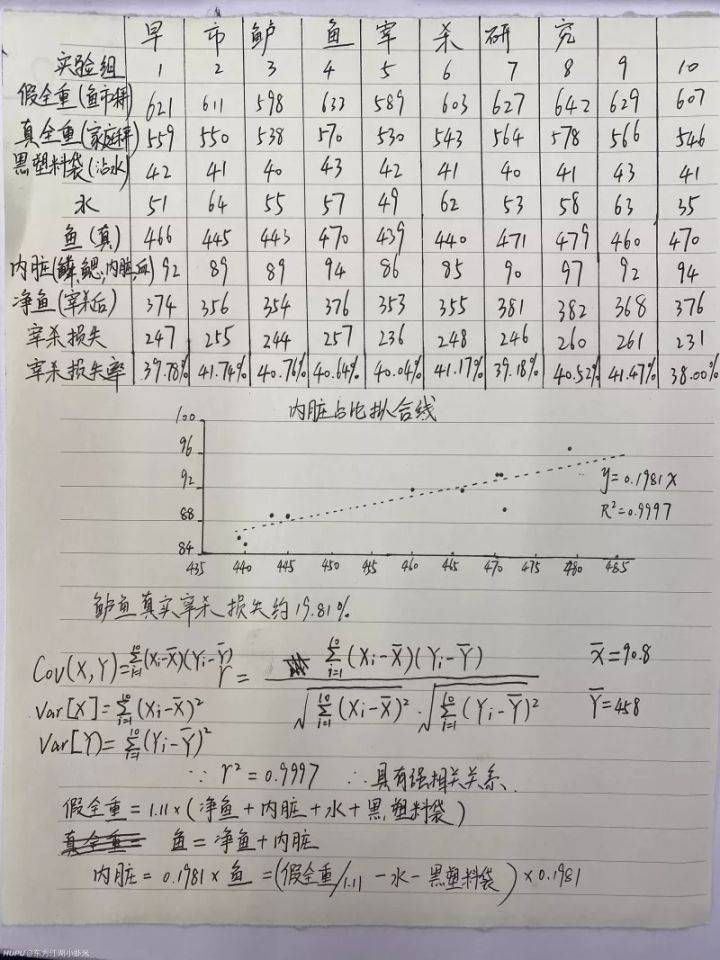 早市鲈鱼宰杀研究
实验组 1 2 3 4 5 6 7 8 9 10
假全重(鱼市秤) 621 611 598 633 589 603 627 642 629 607
真全重(家庭秤) 559 550 538 570 530 543 564 578 566 546
黑塑料袋(沾水) 42 41 40 43 42 41 40 41 43 41
水 51 64 55 57 49 62 53 58 63 35
鱼(真) 466 445 443 470 439 440 471 479 460 470
内脏(鳞,鳃,内脏,血) 92 89 89 94 86 85 90 97 92 94
净鱼(宰杀后) 374 356 354 376 353 355 381 382 368 376
宰杀损失 247 255 244 257 236 248 246 260 261 231
宰杀损失率 39.78% 41.74% 40.76% 40.64% 40.04% 41.17% 39.18% 40.52% 41.47% 38.00%
内脏占比拟合线
100
96
92
88
84
y=0.1981x
R²=0.9997
435 440 445 450 455 460 465 470 475 480 485
鲈鱼真实宰杀损失约19.81%
Cov(X,Y)=∑_{i=1}^{10}(Xi-X̄)(Yi-Ȳ)
r=∑_{i=1}^{10}(Xi-X̄)(Yi-Ȳ)/√∑_{i=1}^{10}(Xi-X̄)²·√∑_{i=1}^{10}(Yi-Ȳ)²
x̄=90.8
Var[X]=∑_{i=1}^{10}(Xi-X̄)²
Ȳ=458
Var[Y)=∑_{i=1}^{10}(Yi-Ȳ)²
∵r²=0.9997 ∴具有强相关关系.
假全重=1.11×(净鱼+内脏+水+黑塑料袋)
真全重= 鱼=净鱼+内脏
内脏=0.1981×鱼=(假全重/1.11-水-黑塑料袋)×0.1981
HUPU @东方江湖小虾米